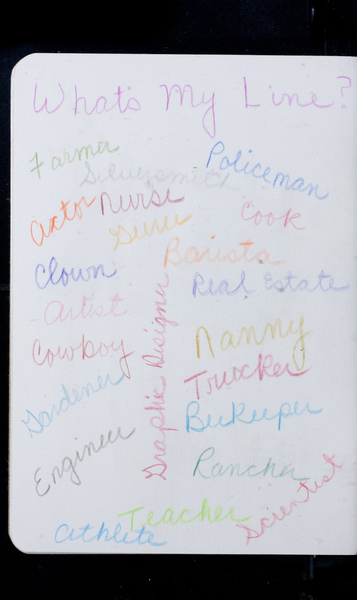 What's My Line?
Farmer
Silversmith
Policeman
Actor
Nurse
Guru
Cook
Barista
Clown
Real Estate
Artist
Graphic Designer
Nanny
Cowboy
Trucker
Gardener
Beekeeper
Engineer
Rancher
Scientist
Teacher
Athlete